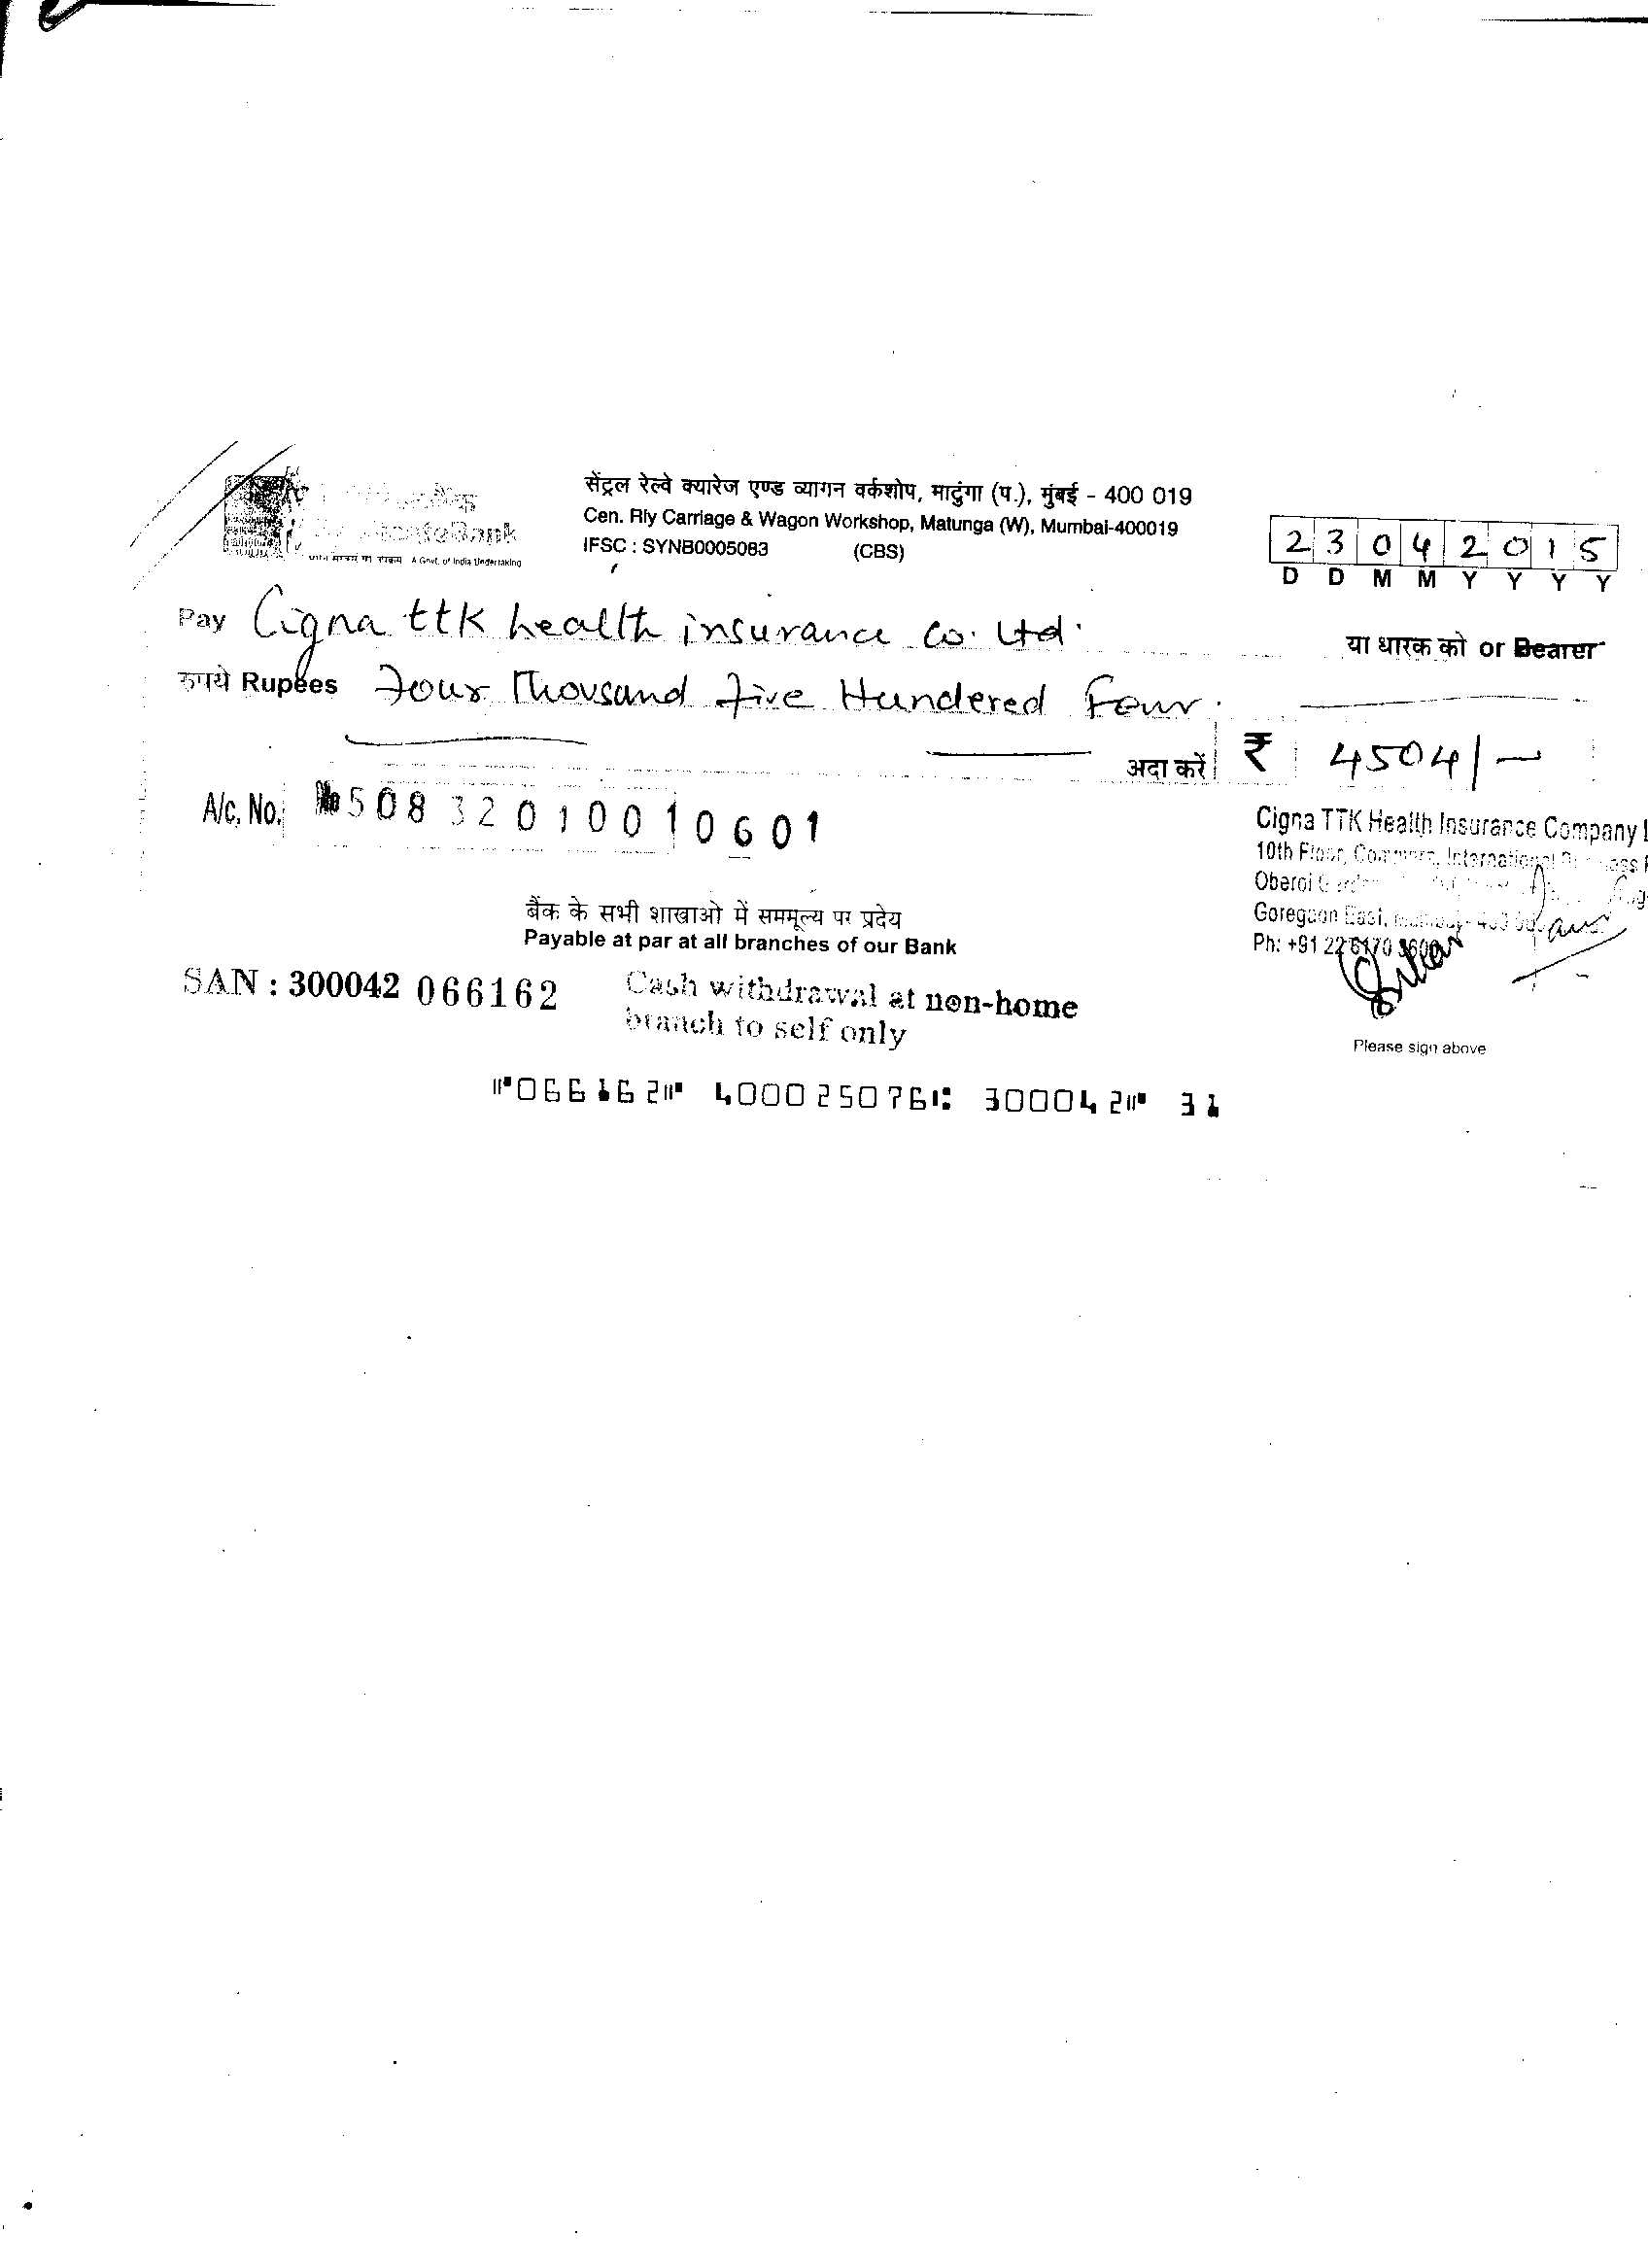 A Govt. of India Undertaking
सेंट्रल रेल्वे क्यारेज एण्ड व्यागन वर्कशोप, माटुंगा (प.), मुंबई - 400 019
Cen. Rly Carriage & Wagon Workshop, Matunga (W), Mumbai-400019
IFSC : SYNB0005083 (CBS)
2 3 0 4 2 0 1 5
D D M M Y Y Y Y
Pay Cigna ttk health insurance co. Ltd. या धारक को or Bearer
रुपये Rupees Four Thousand Five Hundered Four.
अदा करें ₹ 4504/-
A/c. No. 50832010010601
Cigna TTK Health Insurance Company
10th Floor, International
Oberoi
Goregaon East,
Ph: +91 22 6170
बैंक के सभी शाखाओ में सममूल्य पर प्रदेय
Payable at par at all branches of our Bank
SAN : 300042 066162
Cash withdrawal at non-home
branch to self only
Please sign above
⑈066162⑈ 400025076⑆ 300042⑈ 31